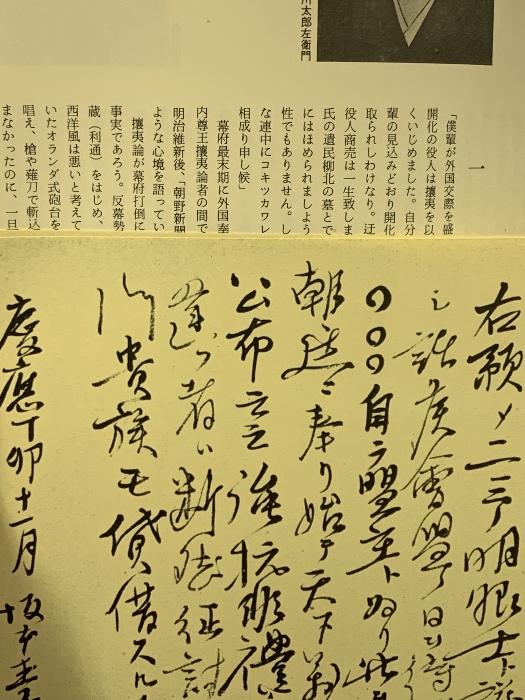 川太郎左衛門
一
「僕輩が外国交際を盛
開化の役人は攘夷を以
くいじめました。自分
輩の見込みどおり開化
取られしわけなり。迂
役人商売は一生致しま
氏の遺民柳北の墓とで
にはほめられましよう
性でもありません。し
な連中にコキツカワレ
相成り申し候」
幕府最末期に外国奉
内尊王攘夷論者の間で
明治維新後、「朝野新聞
ような心境を語ってい
攘夷論が幕府打倒に
事実であろう。反幕勢
蔵(利通)をはじめ、
西洋風は悪いと考えて
いたオランダ式砲台を
唱え、槍や薙刀で斬込
まなかったのに、一旦
右預メ二三ノ明眼士ト議
シ諸侯會盟ノ日ヲ待
〇〇〇自ラ盟主ト為リ此
朝廷ニ奉リ始テ天下萬
公布云云強抗非禮
違フ者ハ断然征討
門貴族モ貸借スル
慶應丁卯十一月 坂本直